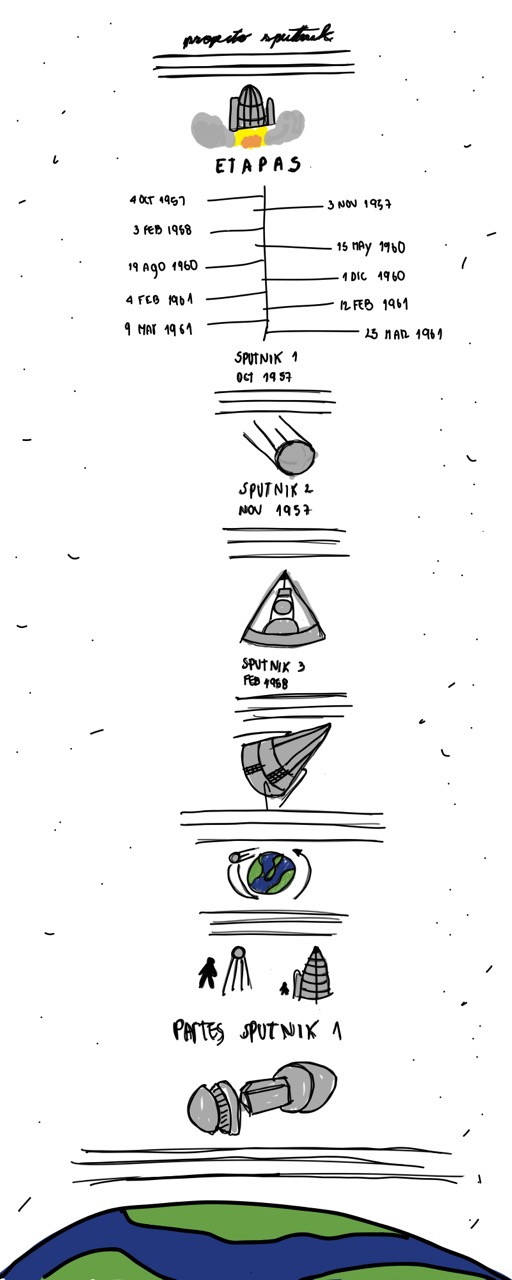 proyecto sputnik
ETAPAS
4 OCT 1957
3 NOV 1957
3 FEB 1958
15 MAY 1960
19 AGO 1960
1 DIC 1960
4 FEB 1961
12 FEB 1961
9 MAR 1961
25 MAR 1961
SPUTNIK 1
OCT 1957
SPUTNIK 2
NOV 1957
SPUTNIK 3
FEB 1958
PARTES SPUTNIK 1